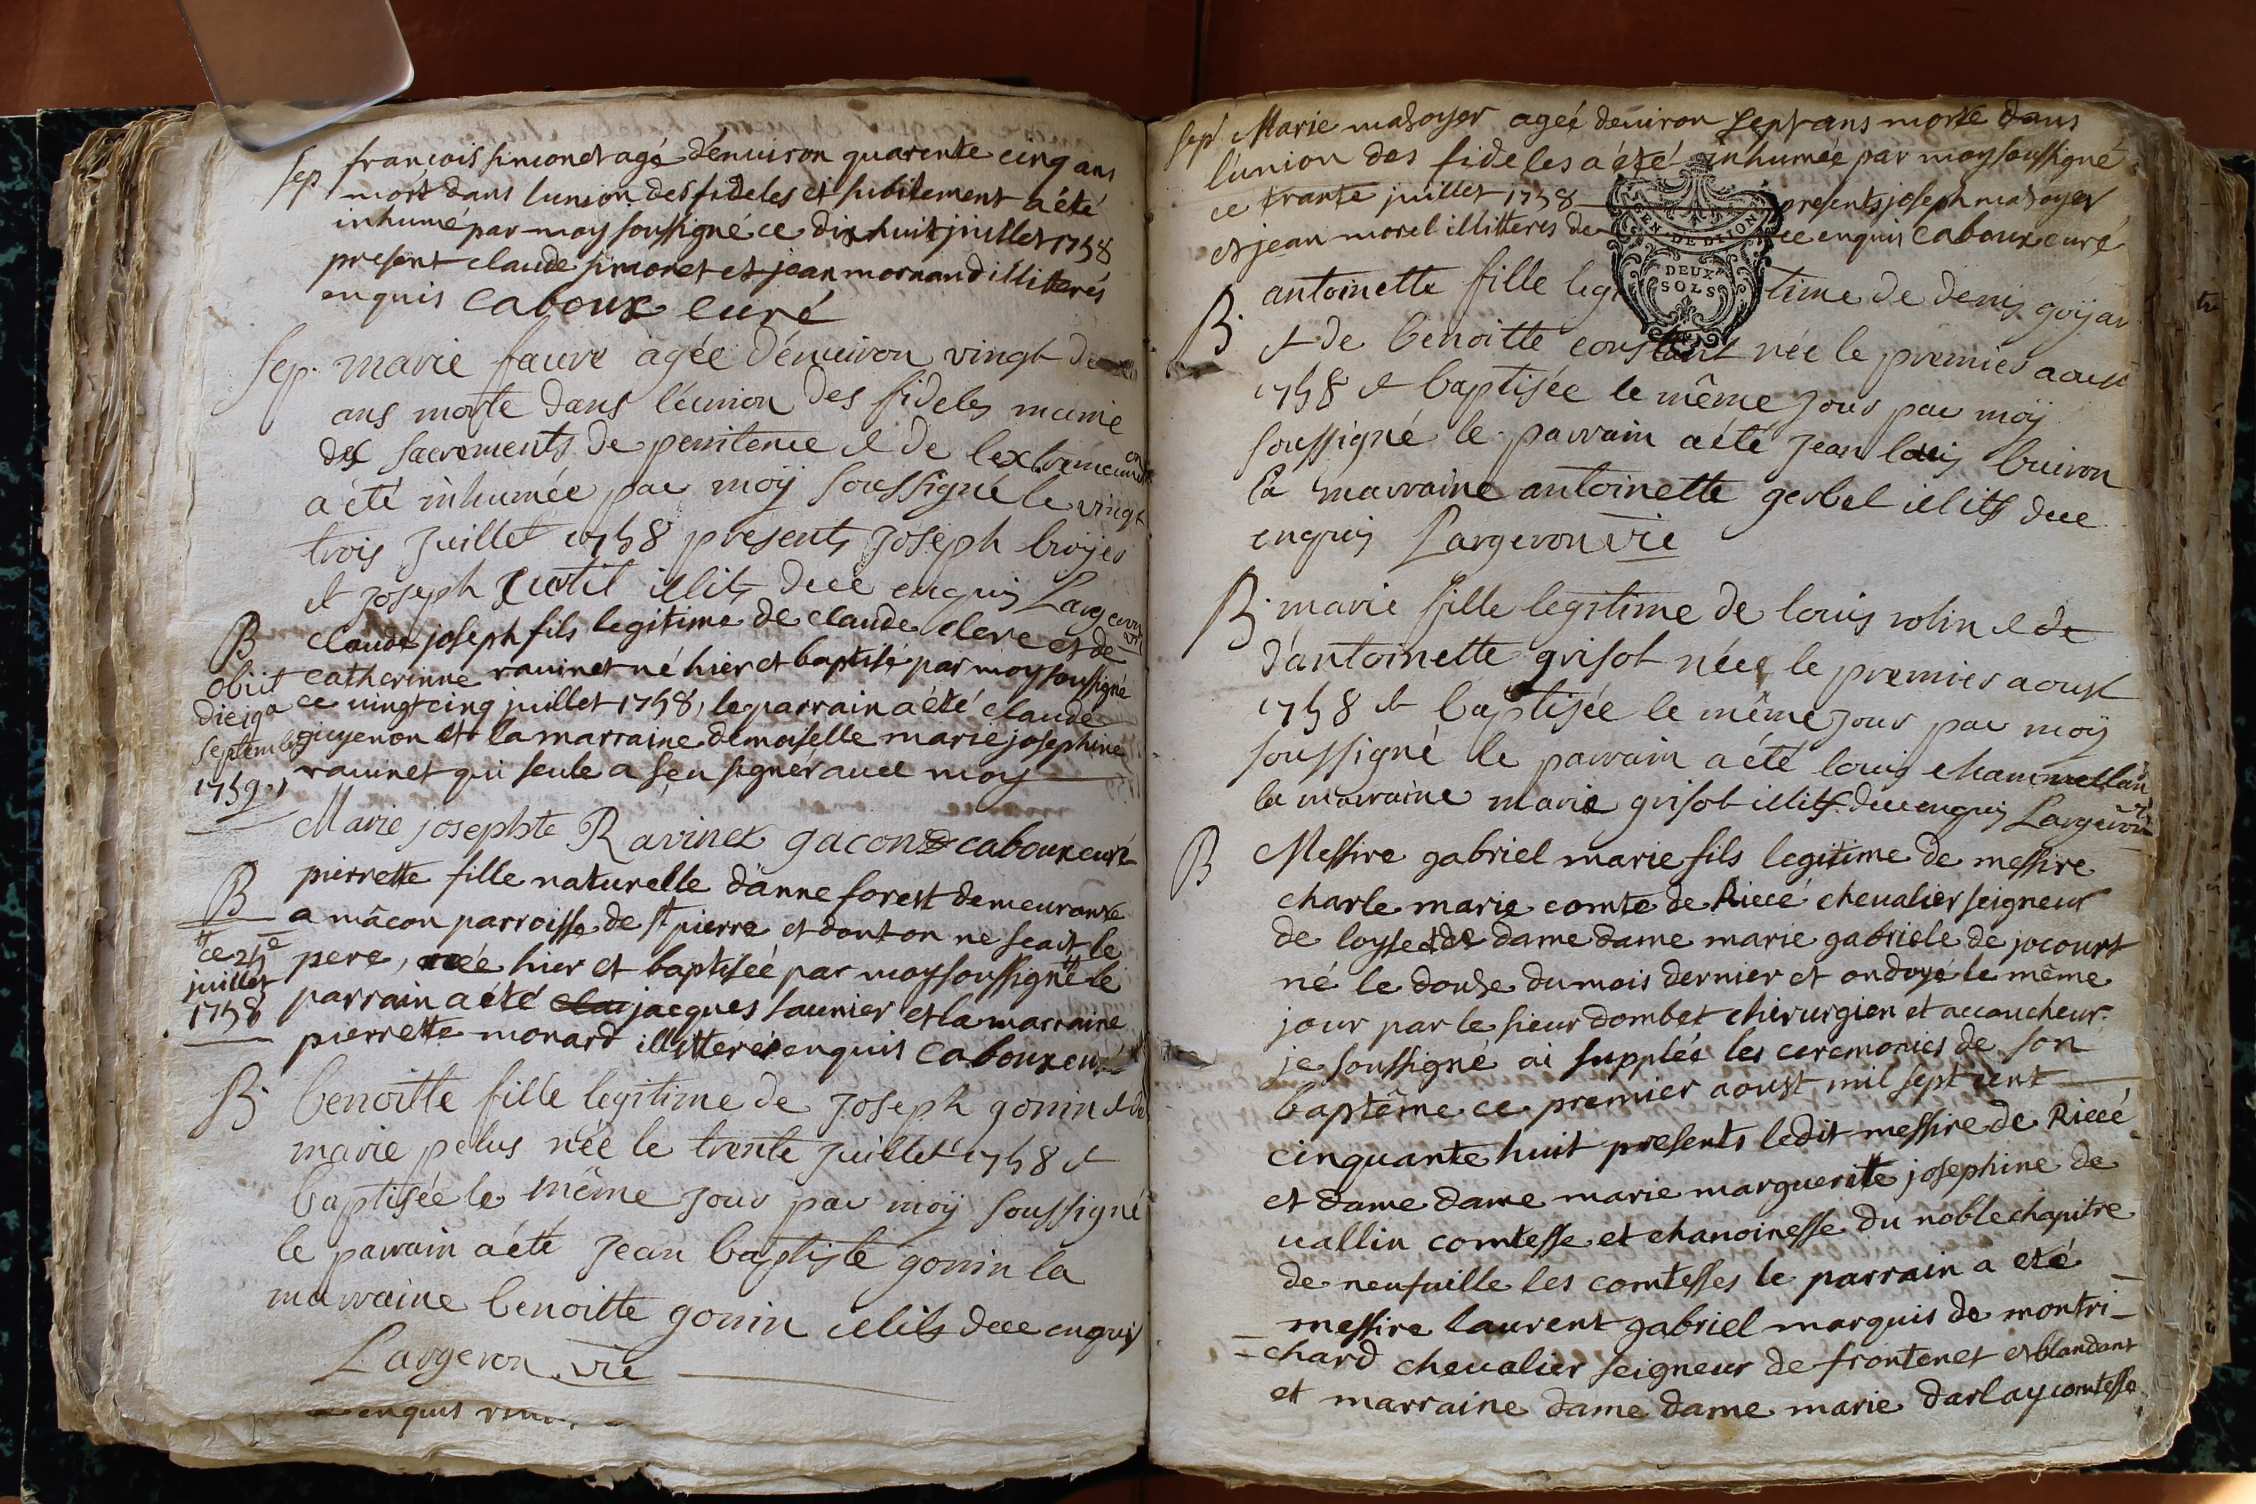 Sep françois simonet agé dénuiron quarente cinq ans
mort dans lunion des fideles et subitement a été
inhumé par moy soussigné ce dix huit juillet 1758
present claude simonet et jean mornand illitterés
enquis caboux curé
Sep. marie faure agée dénuiron vingt
ans morte dans l'eunion des fideles munie
des sacrements de penitence et de lextremeonction
a été inhumée par moÿ soussigné le vingt
trois Juillet 1758 presents Joseph broyer
et Joseph illits duë enquis Largeron
B claude joseph fils legitime de claude clere et de
catherinne rauinet né hier et baptisé par moy soussigné
ce uingt cinq juillet 1758, le parrain a été claude
guyenon et la marraine demoiselle marie josephine
rauinet qui seule a sçu signer auec moy
obiit
die iga
septembr
1759
Marie josephte Ravinet gacon caboux curé
B pierrette fille naturelle d'anne forest demeurante
a mâcon parroisse de st pierre et dont on ne scait le
pere, née hier et baptiséé par moy soussigné le
parrain a été clau jacques saunier et la marraine
pierrette monard illitterés enquis caboux curé
ce 25e
juillet
1758
B. benoitte fille legitime de Joseph gonin et de
marie pelus née le trente Juillet 1758 et
baptisée le même Jour par moÿ soussigné
le parrain a été Jean baptiste gonin la
marraine benoitte gonin illits duë enquis
Largeron vic
enquis
Sep Marie mazoyer ageé denuiron sept ans morte dans
l'union des fideles a été inhumée par moy soussigné
ce trante juillet 1758 presents joseph mazoyer
et jean morel illitteres de ce enquis caboux curé
GEN. DE DIJON
DEUX
SOLS
B. antoinette fille legitime de denis goÿar
et de benoitte constant née le premier aoust
1758 et baptisée le même Jour par moÿ
soussigné le parrain a été Jean louis buiron
la marraine antoinette gerbel illits duë
enquis Largeron vic
B. marie fille legitime de louis rolin et de
d'antoinette grisot née le premier aoust
1758 et baptisée le même Jour par moÿ
soussigné le parrain a été louis
la marraine marie grisot illits duë enquis Largeron
B Messire gabriel marie fils legitime de messire
charle marie comte de Riccé cheualier seigneur
de loyse et de dame dame marie gabriele de jocourt
né le douze du mois dernier et ondoyé le même
jour par le sieur dombet chirurgien et accoucheur
je soussigné ai suppléé les ceremonies de son
baptême ce premier aoust mil sept cent
cinquante huit presents ledit messire de Riccé
et dame dame marie marguerite josephine de
uallin comtesse et chanoinesse du noble chapitre
de neufuille les comtesses le parrain a eté
messire laurent gabriel marquis de montri-
=chard cheualier seigneur de frontenet et blandant
et marraine dame dame marie darlay comtesse